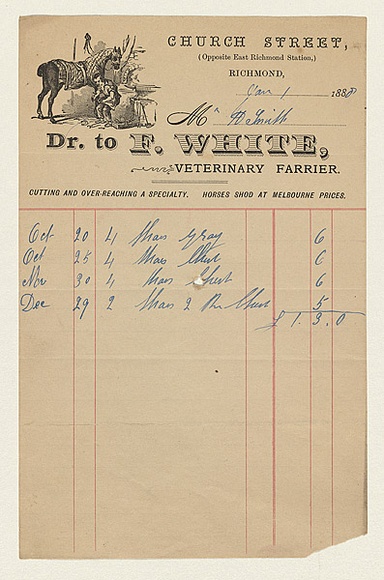 CHURCH STREET,
(Opposite East Richmond Station,)
RICHMOND,
Jan 1 1888
Mr D Smith
Dr. to F. WHITE,
VETERINARY FARRIER.
CUTTING AND OVER-REACHING A SPECIALTY. HORSES SHOD AT MELBOURNE PRICES.
Oct 20 4 Gray 6
Oct 25 4 6
Nov 30 4 6
Dec 29 2 2 5
£ 1. 3. 0